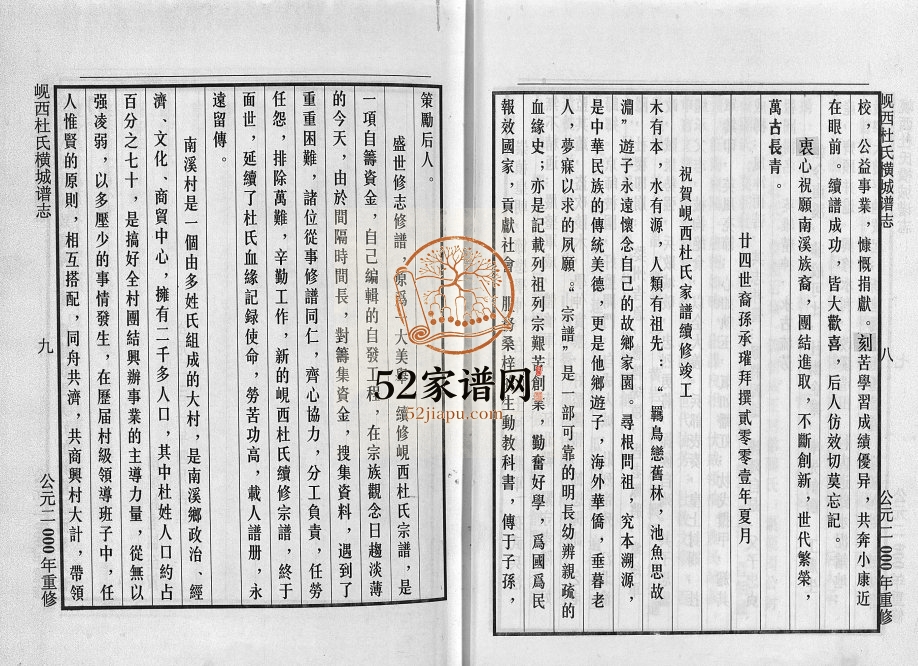 岘西杜氏横城谱志
八
公元二000年重修
校，公益事業，慷慨捐獻。刻苦學習成績優异，共奔小康近
在眼前。續譜成功，皆大歡喜，后人仿效切莫忘記。
衷心祝願南溪族裔，團結進取，不斷創新，世代繁榮，
萬古長青。
廿四世裔孫承璀拜撰貳零零壹年夏月
祝賀峴西杜氏家譜續修竣工
木有本，水有源，人類有祖先：“羈鳥戀舊林，池魚思故
淵”遊子永遠懷念自己的故鄉家園。尋根問祖，究本溯源，
是中華民族的傳統美德，更是他鄉遊子，海外華僑，垂暮老
人，夢寐以求的夙願。“宗譜”是一部可靠的明長幼辨親疏的
血緣史；亦是記載列祖列宗艱苦創業，勤奮好學，爲國爲民
報效國家，貢獻社會，服務桑梓的生動教科書，傳于子孫，
策勵后人。
盛世修志修譜，原爲一大美舉，續修峴西杜氏宗譜，是
一項自籌資金，自己編輯的自發工程，在宗族觀念日趨淡薄
的今天，由於間隔時間長，對籌集資金，搜集資料，遇到了
重重困難，諸位從事修譜同仁，齊心協力，分工負責，任勞
任怨，排除萬難，辛勤工作，新的峴西杜氏續修宗譜，終于
面世，延續了杜氏血緣記録使命，勞苦功高，載人譜册，永
遠留傳。
南溪村是一個由多姓氏組成的大村，是南溪鄉政治、經
濟、文化、商貿中心，擁有二千多人口，其中杜姓人口約占
百分之七十，是搞好全村團結興辦事業的主導力量，從無以
强凌弱，以多壓少的事情發生，在歷届村級領導班子中，任
人惟賢的原則，相互搭配，同舟共濟，共商興村大計，帶領
岘西杜氏横城谱志
九
公元二000年重修
52家谱网
52jiapu.com